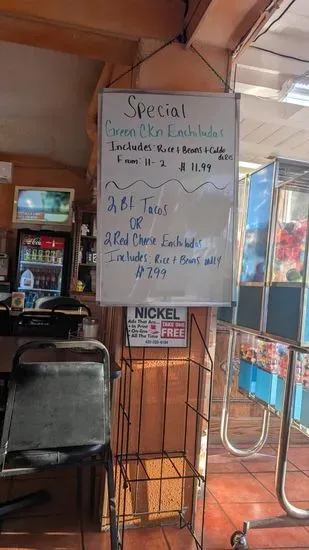 Special
Green Ckn Enchiladas
Includes: Rice + Beans + Caldo
de Res
From: 11-2 $11.99
2 Bf Tacos
OR
2 Red Cheese Enchiladas
Includes: Rice + Beans only
$7.99
NICKEL
Ads That Are
• In Print
TAKE ONE
FREE
All The Time